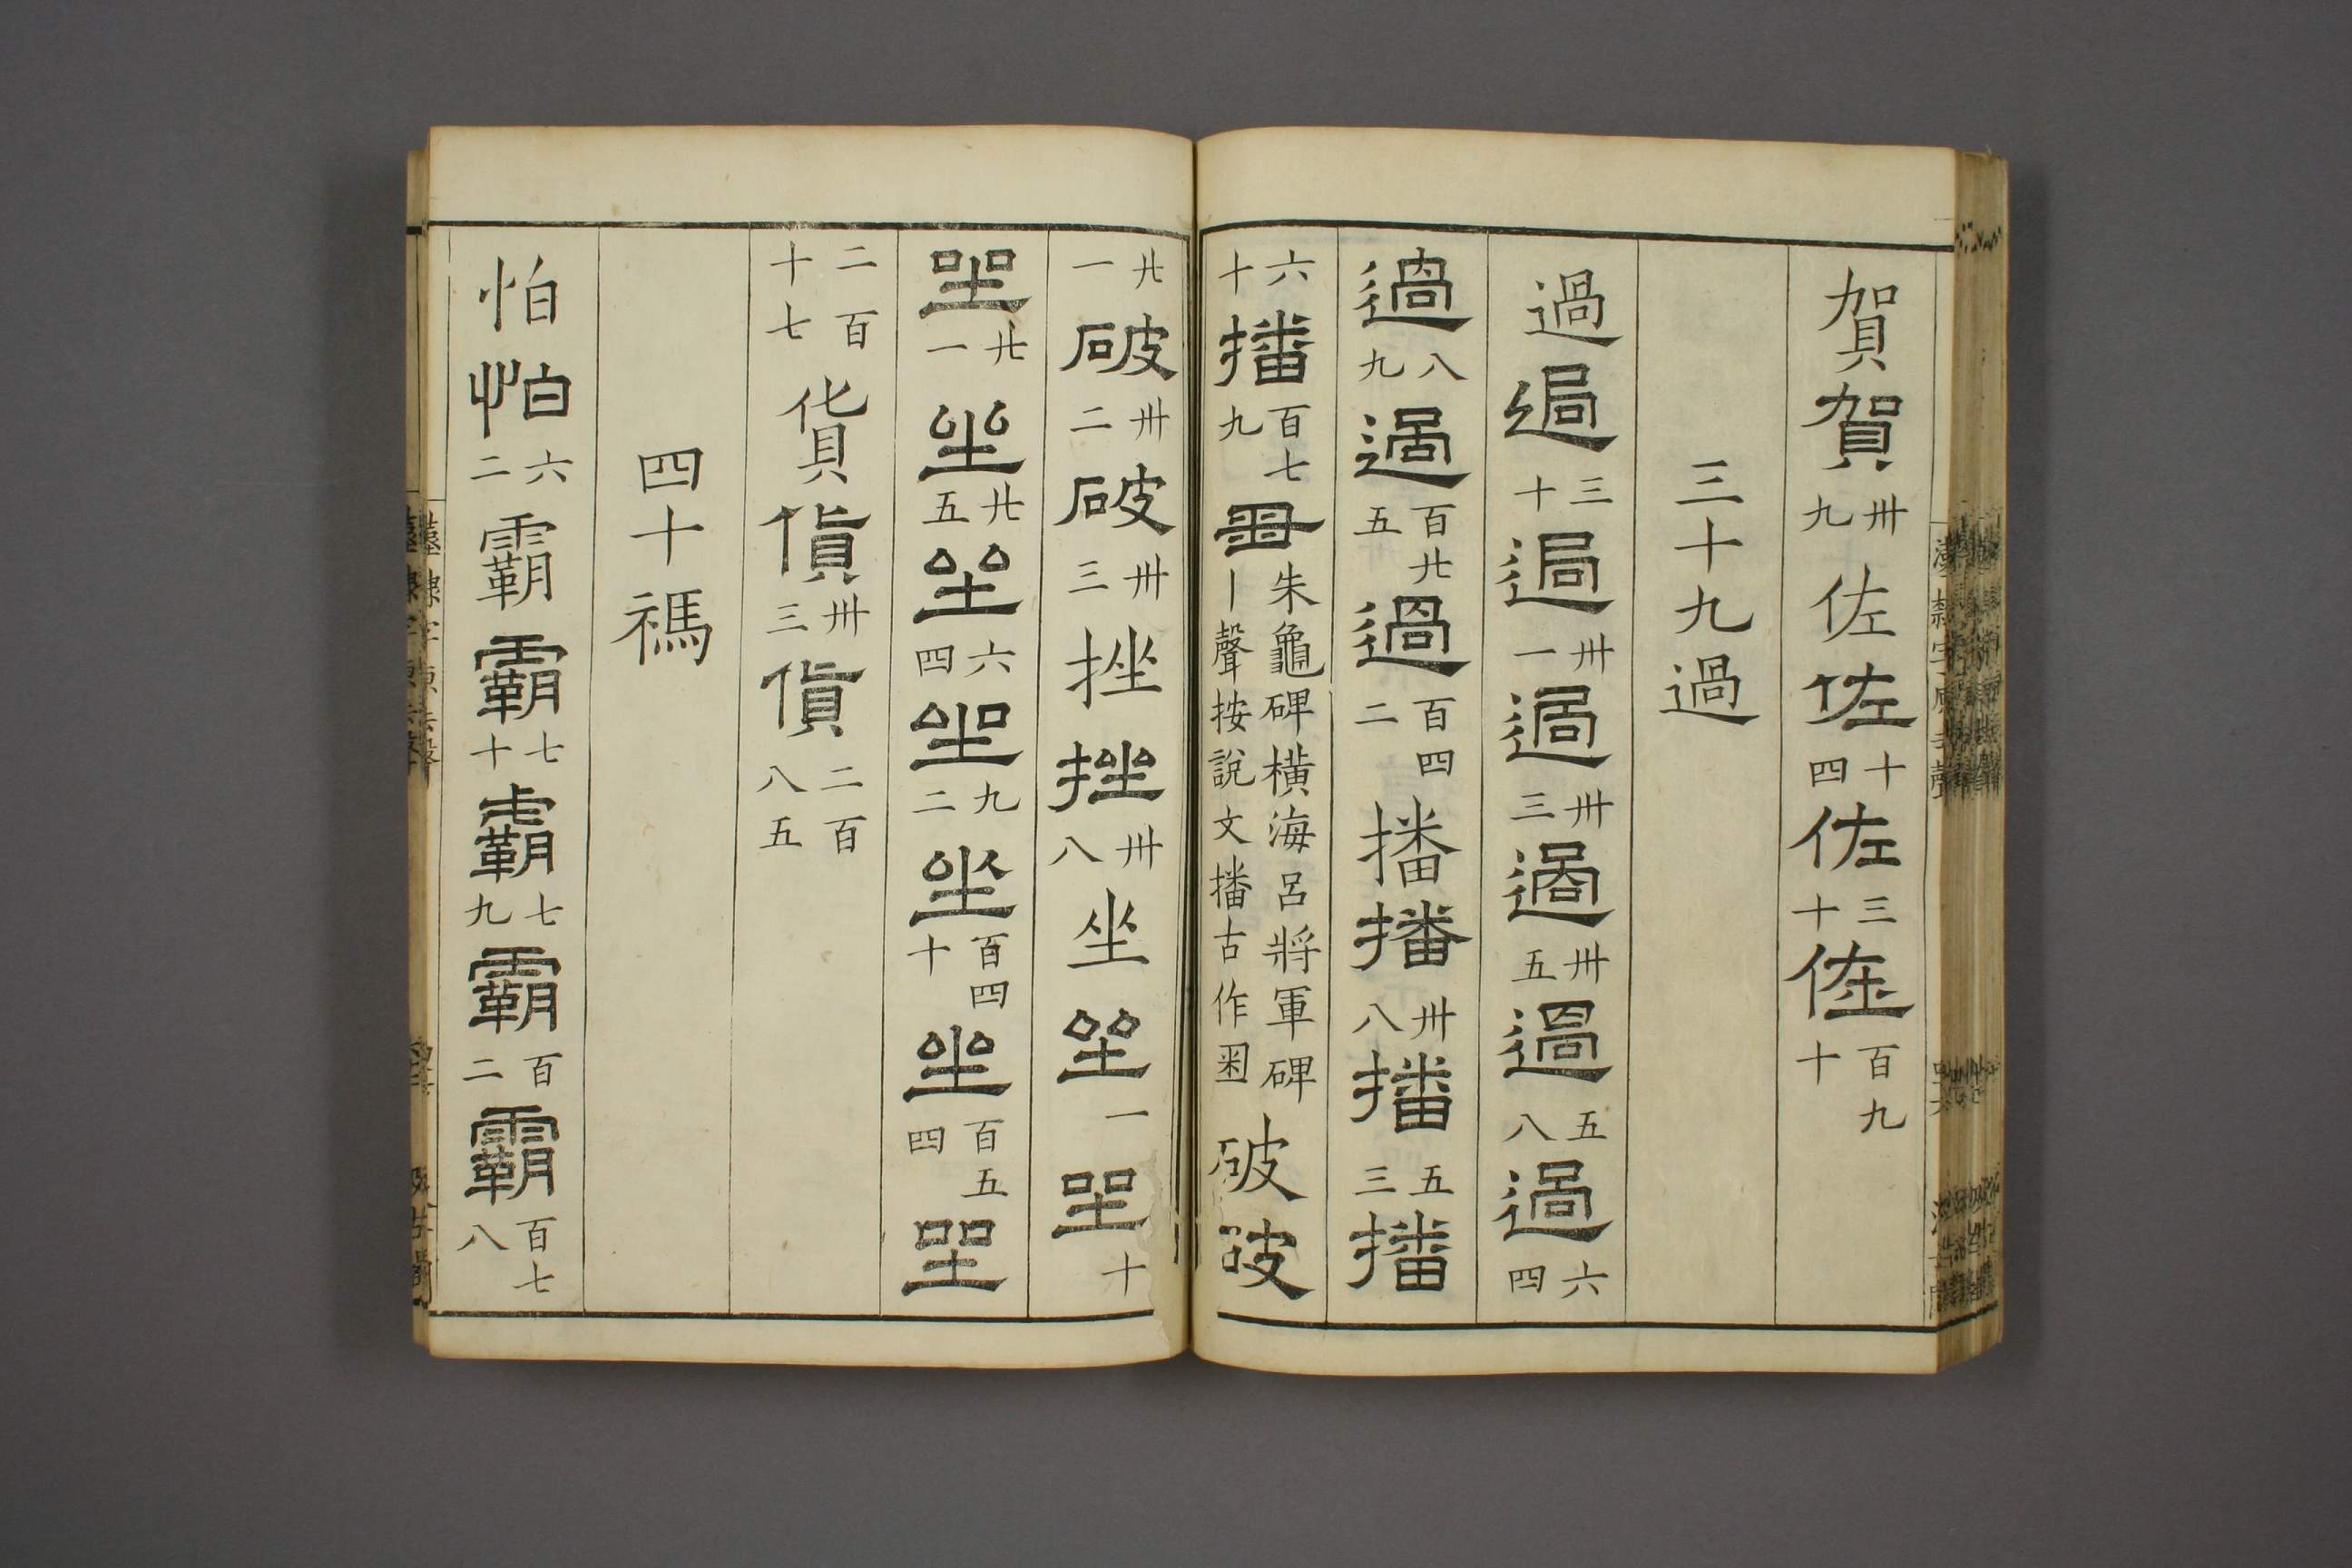 賀賀卅九佐佐十四佐三十佐百九十
三十九過
過過三十過卅一過卅三過卅五過五八過六四
過八九過百廿五過百四二播播卅八播五三播
六十播百七九𤰃朱龜碑橫海呂將軍碑丨聲按說文播古作𤰃破破
廿一破卅二破卅三挫挫卅八坐坐一坐十
坐廿一坐廿五坐六四坐九二坐百四十坐百五四坐
二百十七貨貨卅三貨二百八五
四十禡
怕怕六二霸霸七十霸七九霸百二霸百七八
漢隸字原去聲